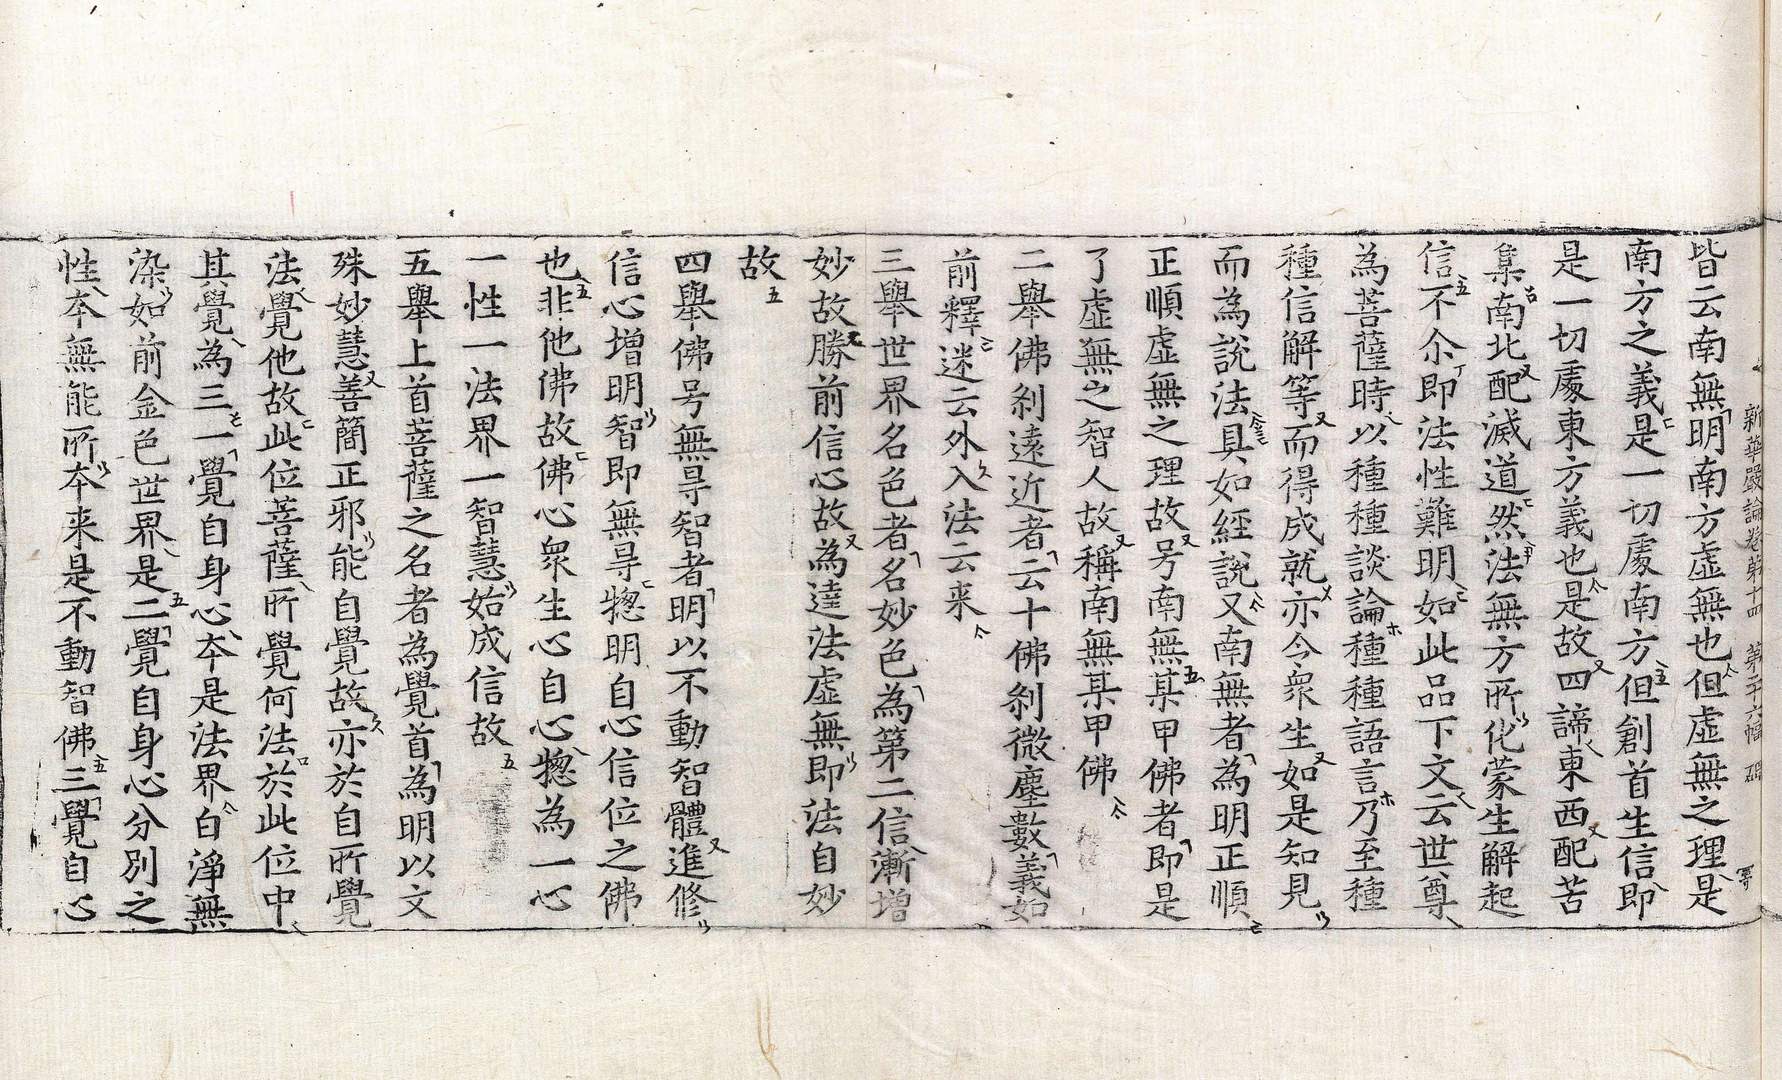 新華嚴論卷第十四　第二十六幅
皆云南無明南方虛無也但虛無之理是
南方之義是一切處南方但創首生信即
是一切處東方義也是故四諦東西配苦
集南北配滅道然法無方所化蒙生解起
信不尒即法性難明如此品下文云世尊
為菩薩時以種種談論種種語言乃至種
種信解等而得成就亦今衆生如是知見
而為說法具如經說又南無者為明正順
正順虛無之理故号南無某甲佛者即是
了虛無之智人故稱南無某甲佛
二舉佛刹遠近者云十佛刹微塵數義如
前釋迷云外入法云来
三舉世界名色者名妙色為第二信漸增
妙故勝前信心故為達法虛無即法自妙
故
四舉佛号無㝵智者明以不動智體進修
信心增明智即無㝵揔明自心信位之佛
也非他佛故佛心衆生心自心揔為一心
一性一法界一智慧始成信故
五舉上首菩薩之名者為覺首為明以文
殊妙慧善簡正邪能自覺故亦於自所覺
法覺他故此位菩薩所覺何法於此位中
其覺為三一覺自身心本是法界白淨無
染如前金色世界是二覺自身心分別之
性本無能所本来是不動智佛三覺自心